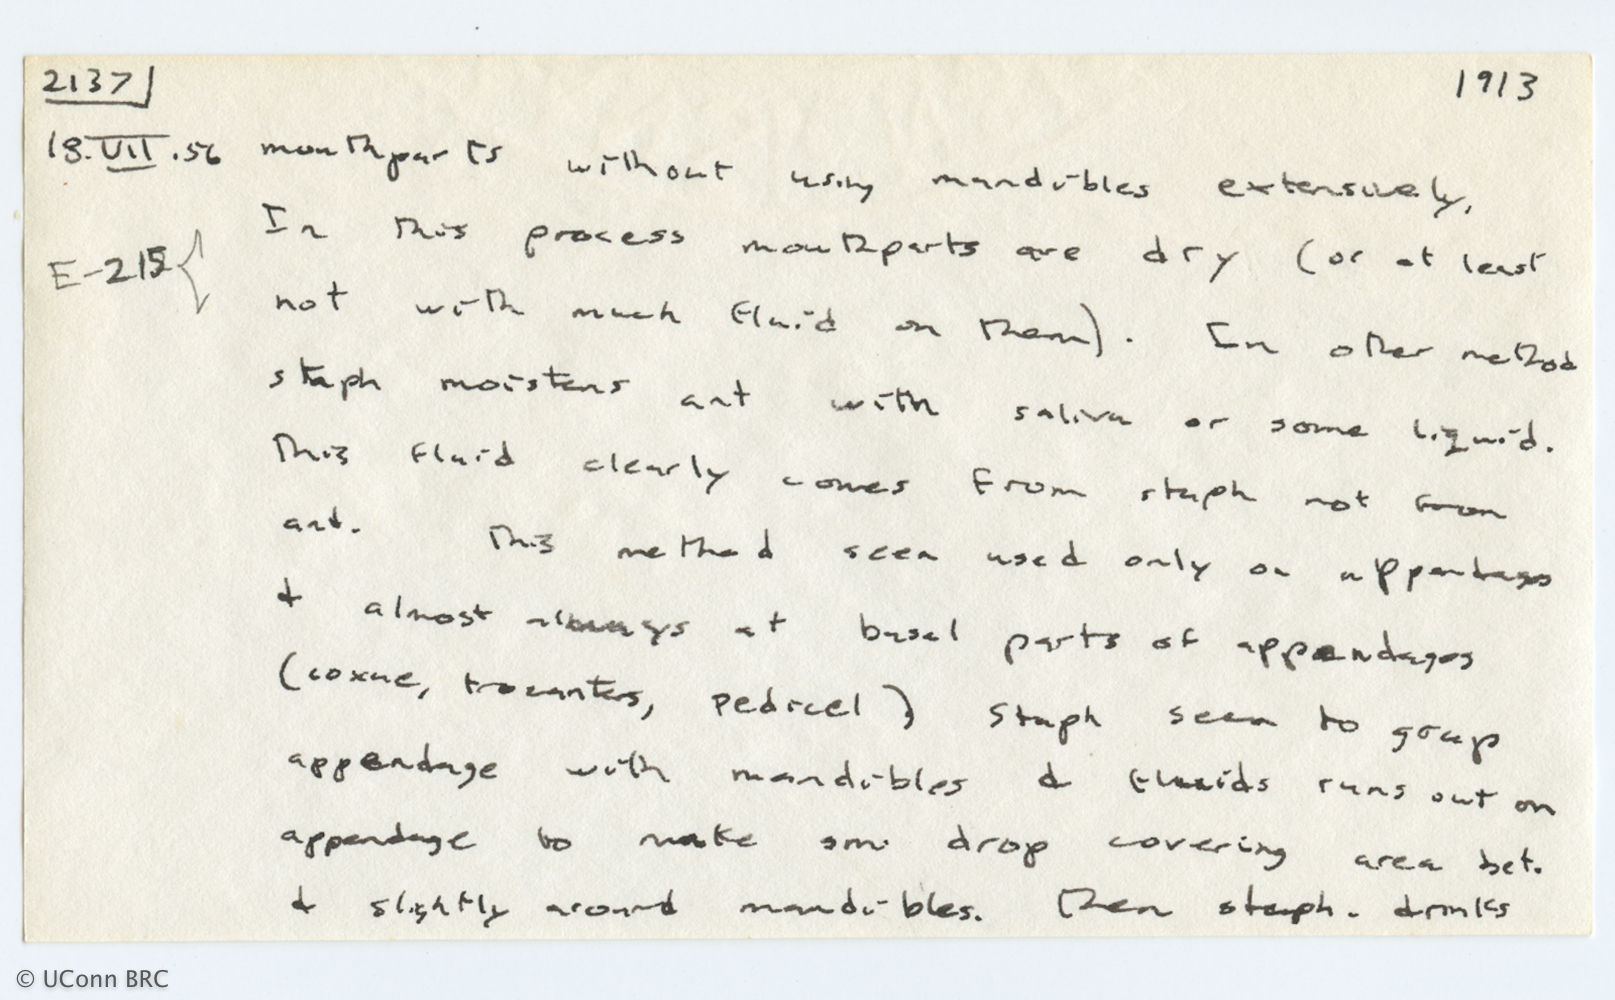 2137 1913
18.VII.56 mouthparts without using mandibles extensively.
In this process mouthparts are dry (or at least
E-215 {
not with much fluid on them). In other method
staph moistens ant with saliva or some liquid.
This fluid clearly comes from staph not from
ant. This method seen used only on appendages
& almost always at basal parts of appendages
(coxae, trocanters, pedicel) Staph seen to grasp
appendage with mandibles & fluids runs out on
appendage to make sm. drop covering area bet.
& slightly around mandibles. Then staph. drinks
© UConn BRC